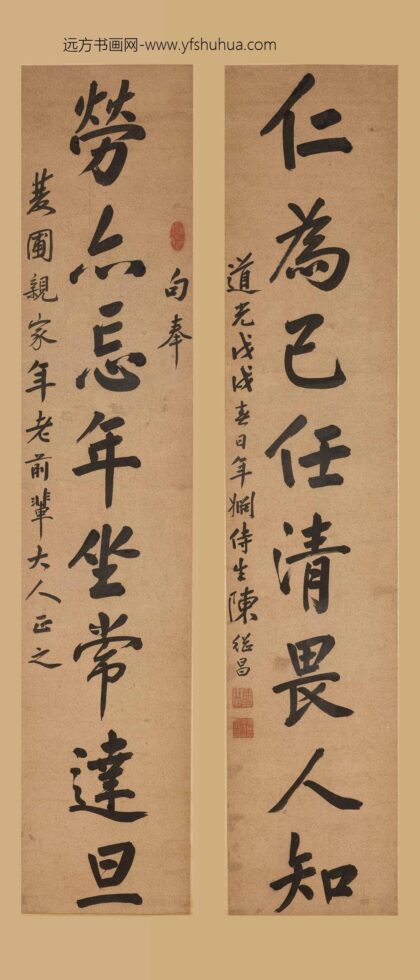 远方书画网-www.yfshuhua.com
仁為己任清畏人知
道光戊戌春日年婣侍生陳繼昌
句奉
勞亦忘年坐常達旦
菱圃親家年老前輩大人正之